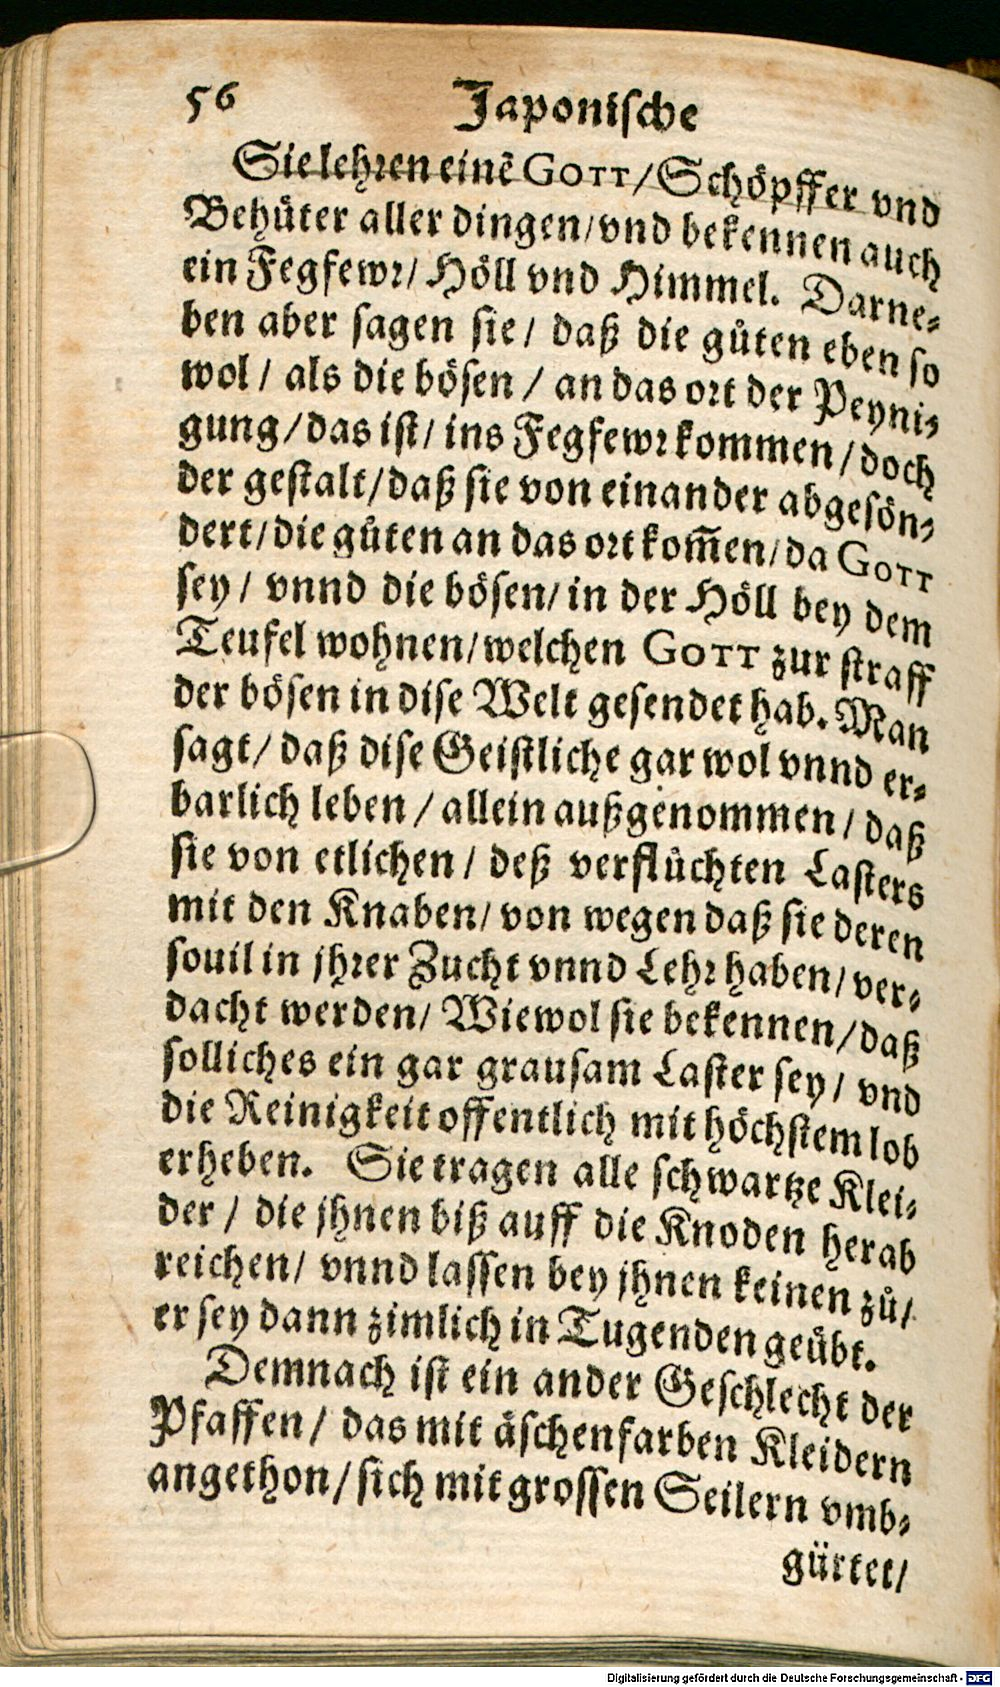 56 Japonische
Sie lehren einē GOTT/ Schöpffer vnd
Behüter aller dingen/ vnd bekennen auch
ein Fegfewr/ Höll vnd Himmel. Darne-
ben aber sagen sie/ daß die gůten eben so
wol/ als die bösen/ an das ort der Peyni-
gung/ das ist/ ins Fegfewr kommen/ doch
der gestalt/ daß sie von einander abgesön-
dert/ die gůten an das ort kom̄en/ da GOTT
sey/ vnnd die bösen/ in der Höll bey dem
Teufel wohnen/ welchen GOTT zur straff
der bösen in dise Welt gesendet hab. Man
sagt/ daß dise Geistliche gar wol vnnd er-
barlich leben/ allein außgenommen/ daß
sie von etlichen/ deß verflůchten Lasters
mit den Knaben/ von wegen daß sie deren
souil in jhrer Zucht vnnd Lehr haben/ ver-
dacht werden/ Wiewol sie bekennen/ daß
solliches ein gar grausam Laster sey/ vnd
die Reinigkeit offentlich mit höchstem lob
erheben. Sie tragen alle schwartze Klei-
der/ die jhnen biß auff die Knoden herab
reichen/ vnnd lassen bey jhnen keinen zů/
er sey dann zimlich in Tugenden geübt.
Demnach ist ein ander Geschlecht der
Pfaffen/ das mit äschenfarben Kleidern
angethon/ sich mit grossen Seilern vmb-
gürtet/
Digitalisierung gefördert durch die Deutsche Forschungsgemeinschaft - DFG